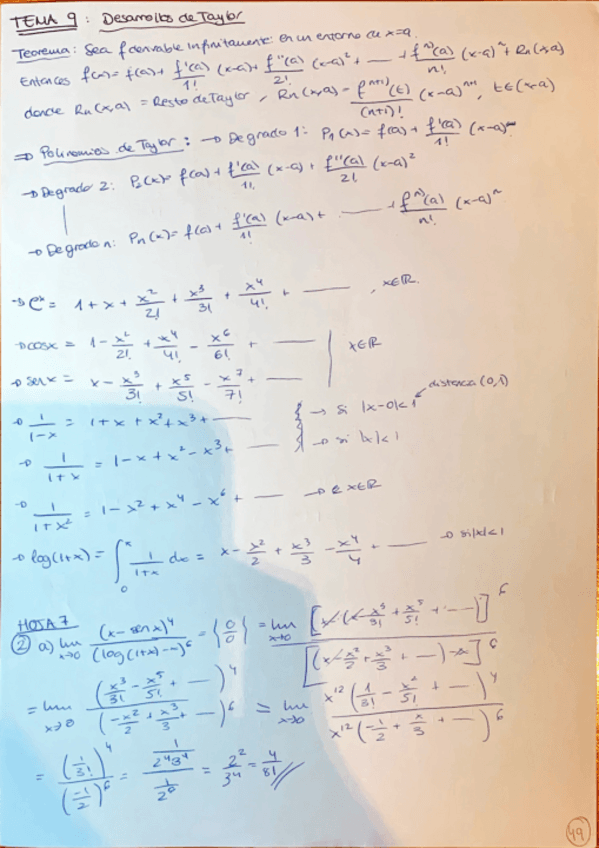 TEMA 9: Desarrollos de Taylor
Teorema: Sea f derivable infinitamente en un entorno de x=a.
Entonces f(x) = f(a) + f'(a)/1! (x-a) + f''(a)/2! (x-a)² + — + fⁿ⁾(a)/n! (x-a)ⁿ + Rn(x,a)
donde Rn(x,a) = Resto de Taylor, Rn(x,a) = fⁿ⁺¹⁾(t)/(n+1)! (x-a)ⁿ⁺¹, t∈(x,a)
⇒ Polinomios de Taylor: → De grado 1: P₁(x) = f(a) + f'(a)/1! (x-a)
→ De grado 2: P₂(x) = f(a) + f'(a)/1! (x-a) + f''(a)/2! (x-a)²
→ De grado n: Pn(x) = f(a) + f'(a)/1! (x-a) + — + fⁿ⁾(a)/n! (x-a)ⁿ
→ eˣ = 1 + x + x²/2! + x³/3! + x⁴/4! + — , x∈ℝ.
→ cos x = 1 - x²/2! + x⁴/4! - x⁶/6! + — x∈ℝ
→ sen x = x - x³/3! + x⁵/5! - x⁷/7! + —
distancia (0,1)
→ 1/(1-x) = 1 + x + x² + x³ + — → si |x-0|<1
→ 1/(1+x) = 1 - x + x² - x³ + — → si |x|<1
→ 1/(1+x²) = 1 - x² + x⁴ - x⁶ + — → x∈ℝ
→ log(1+x) = ∫₀ˣ 1/(1+x) dx = x - x²/2 + x³/3 - x⁴/4 + — → si |x|<1
HOJA 7
② a) lim x→0 (x - sen x)⁴/(log(1+x) - x)⁶ = {0/0} = lim x→0 [x - (x - x³/3! + x⁵/5! + —)]⁶/[(x - x²/2 + x³/3 + —) - x]⁶
= lim x→0 (x³/3! - x⁵/5! + —)⁴/(-x²/2 + x³/3 + —)⁶ = lim x→0 x¹²(1/3! - x²/5! + —)⁴/x¹²(-1/2 + x/3 + —)⁶
= (1/3!)⁴/(-1/2)⁶ = (1/2⁴3⁴)/(1/2⁶) = 2²/3⁴ = 4/81
49